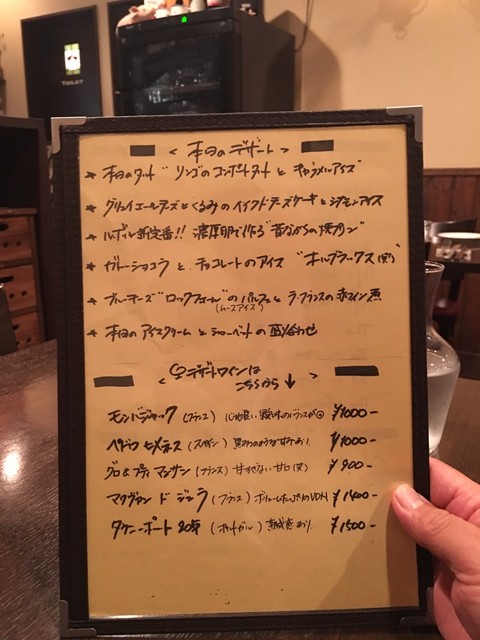 TOILET
< 本日のデザート >
* 本日のタルト "リンゴのコンポートタルトとキャラメルアイス"
* グリュイエールチーズとくるみのベイクドチーズケーキとシナモンアイス
* 新定番!! 濃厚卵で作る "昔ながらの焼プリン"
* ガトーショコラと、チョコレートのアイス "オルブラックス(笑)"
* ブルーチーズ "ロックフォール" のパルフェとラ・フランスの赤ワイン煮
(ムースアイス)
* 本日のアイスクリームとシャーベットの盛り合わせ
< デザートワインは
こちらから ↓ >
モンバジャック (フランス) 酸味のバランスが ¥1000-
ペドロヒメネス (スペイン) 黒みつのような甘みあり ¥1000-
グロ&プティマンサン (フランス) 甘すぎない甘口(笑) ¥900-
マクヴァン ド ジュラ (フランス) VDN ¥1400-
タウニーポート 20年 (ポルトガル) 熟成感あり ¥1500-